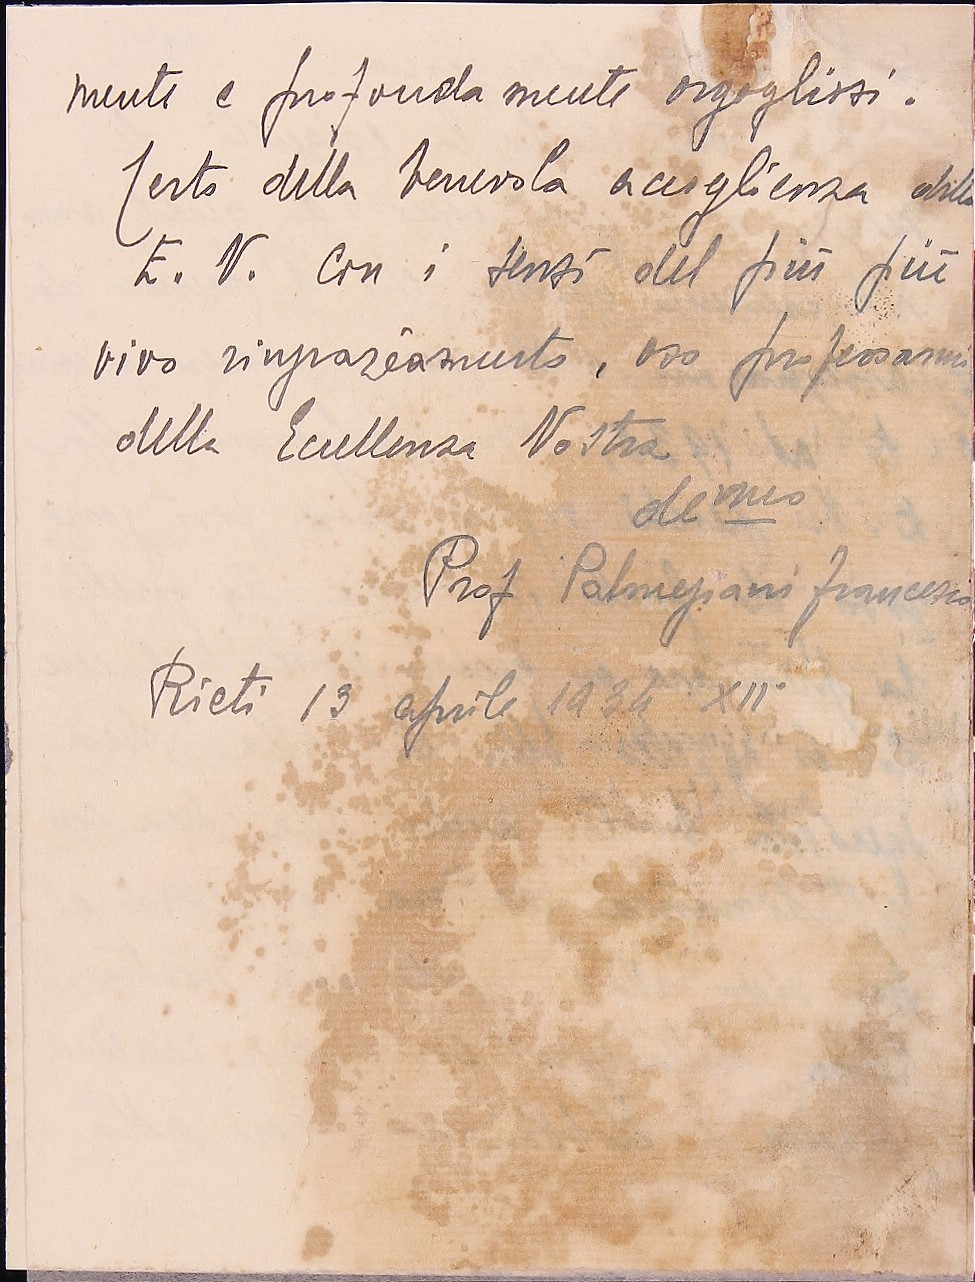 mente e profondamente orgogliosi.
Certo della benevola accoglienza della
E. V. con i sensi del più più
vivo ringraziamento, oso professarmi
della Eccellenza Vostra
de mo
Prof Palmegiani Francesco
Rieti 13 aprile 1934 XII°